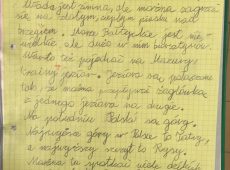 Woda jest zimna, ale można zagrzać
się na złotym, ciepłym piasku nad
brzegiem. Morze Bałtyckie jest nie-
wielkie ale dużo w nim bursztynów.
Warto też pojechać na Mazury -
krainę jezior. Jeziora są połączone
tak, że można przepłynąć żaglówką
z jednego jeziora na drugie.
Na południu Polski są góry.
Najwyższe góry w Polsce to Tatry,
a najwyższy szczyt to Rysy.
Można tu spotkać wiele dzikich